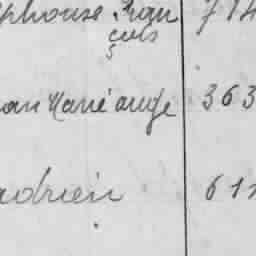 phonse Fran 714
çois
an Marie ange 363
adrien 611